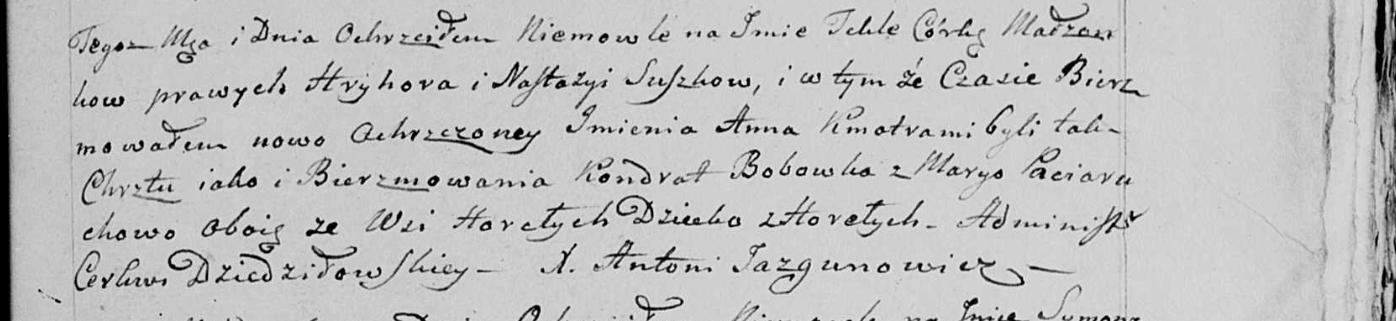 Tegoż Mca i Dnia Ochrzciłem Niemowle na Imie Tekle Córkę Małżon
kow prawych Hryhora i Nastazyi Suszkow, i w tym że Czasie Bierz
mowałem nowo Ochrzczoney Imienia Anna Kmotrami byli tak
Chrztu iako i Bierzmowania Kondrat Bobowka z Maryo Paciaru
chowo oboie ze Wsi Horełych Dziecko z Horełych - Administr
Cerkwi Dziedziłowskiey - X. Antoni Jazgunowicz -
na Imie